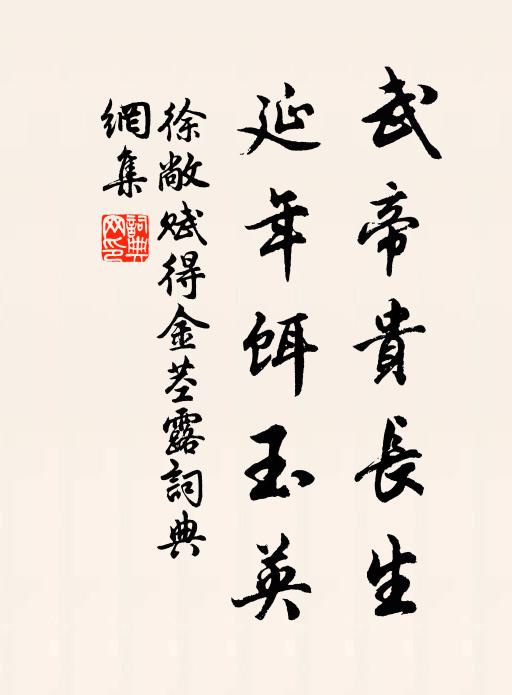 武帝貴長生
延年餌玉英
徐敞賦得金莖露詞典
網集
詞典
網印